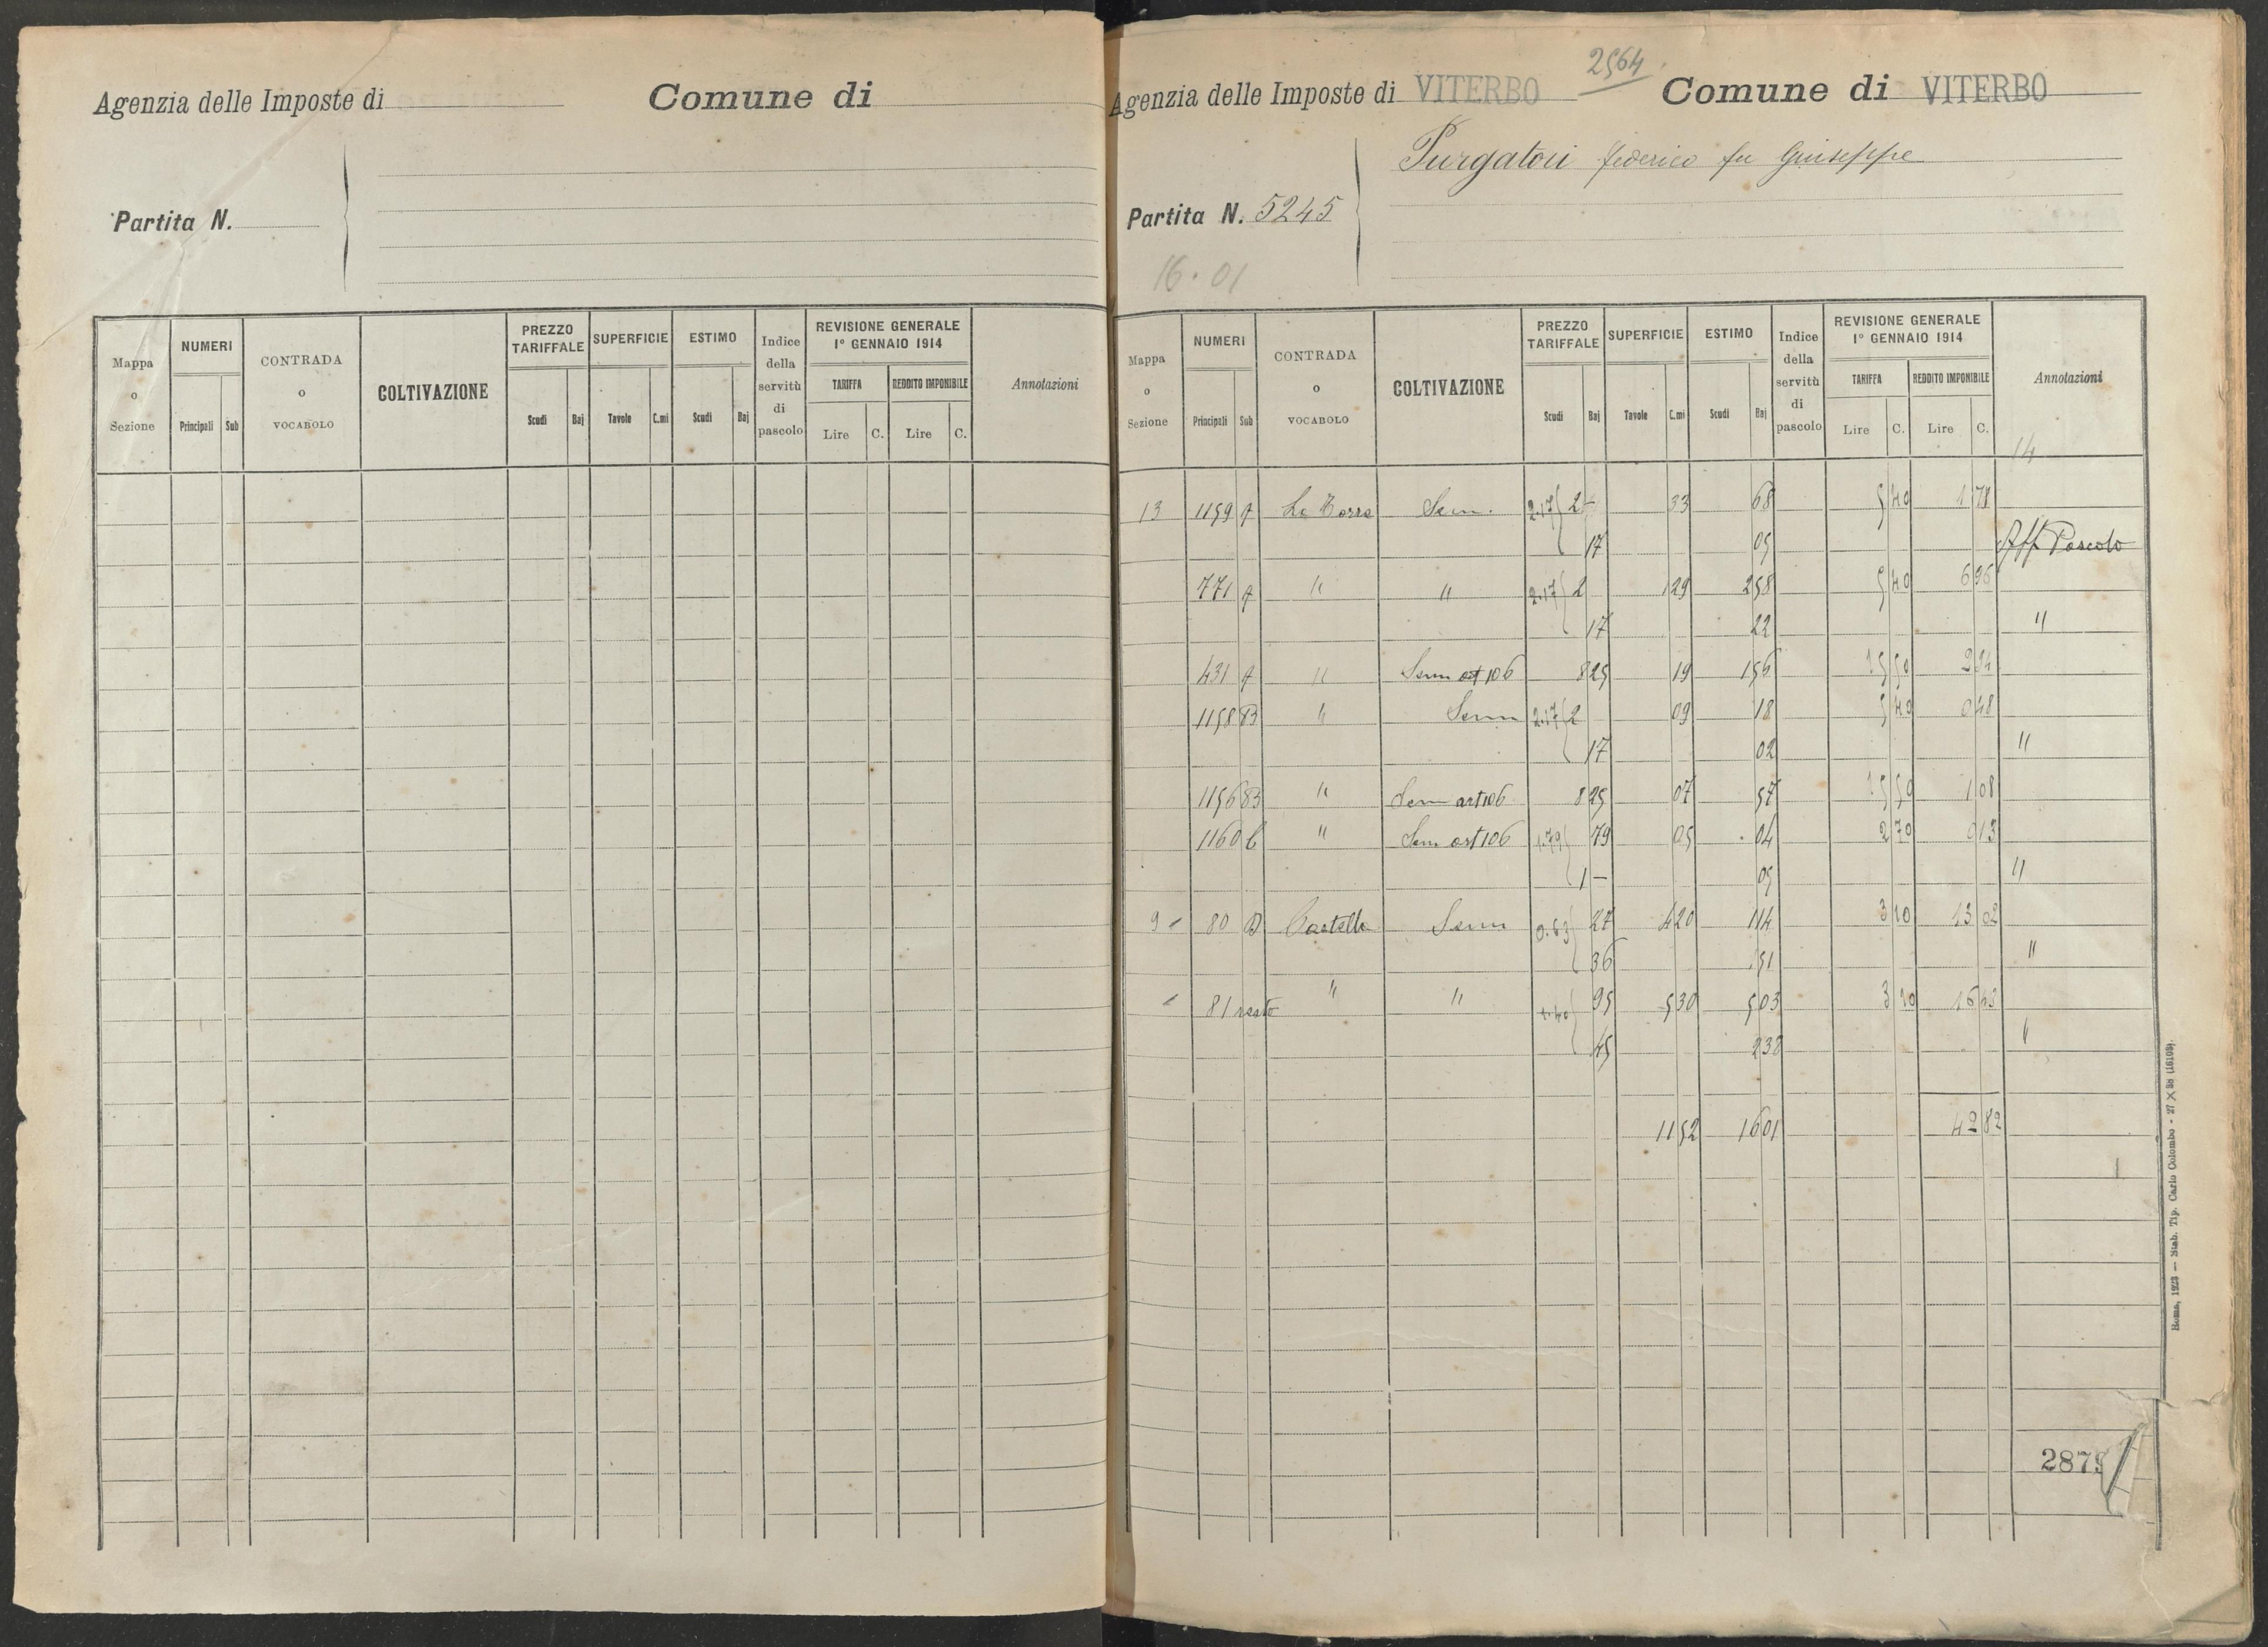 Agenzia delle Imposte di
Comune di
Partita N.
Mappa o Sezione
NUMERI
Principali Sub
CONTRADA o VOCABOLO
COLTIVAZIONE
PREZZO TARIFFALE
Scudi Baj
SUPERFICIE
Tavole C.mi
ESTIMO
Scudi Baj
Indice della servitù di pascolo
REVISIONE GENERALE
1° GENNAIO 1914
TARIFFA REDDITO IMPONIBILE
Lire C. Lire C.
Annotazioni
2564
Agenzia delle Imposte di VITERBO Comune di VITERBO
Purgatori Federico fu Giuseppe
Partita N. 5245
16.01
Mappa o Sezione
NUMERI
Principali Sub
CONTRADA o VOCABOLO
COLTIVAZIONE
PREZZO TARIFFALE
Scudi Baj
SUPERFICIE
Tavole C.mi
ESTIMO
Scudi Baj
Indice della servitù di pascolo
REVISIONE GENERALE
1° GENNAIO 1914
TARIFFA REDDITO IMPONIBILE
Lire C. Lire C.
Annotazioni
14
13 1159 La Torre Sem. 2.17 2 - 33 68 5 40 1 78
17 05 Aff Pascolo
771 " " 2.17 2 1 29 2 58 5 40 6 96
17 22 "
431 " Sem art 106 8 25 19 1 56 15 50 2 94
1158 B " Sem 2.17 2 09 18 5 40 0 48
17 02 "
1156 B " Sem art 106 8 25 07 57 15 50 1 08
1160 b " Sem art 106 1.79 79 05 04 2 70 0 13
1 - 05 "
9 80 Castello Sem 0.63 27 4 20 1 14 3 10 13 02
36 1 51 "
81 resto " " 1.40 95 5 30 5 03 3 10 16 43
45 2 38 "
11 52 16 01 42 82
Roma, 1923 — Stab. Tip. Carlo Colombo - 27 X 38 (16103).
287